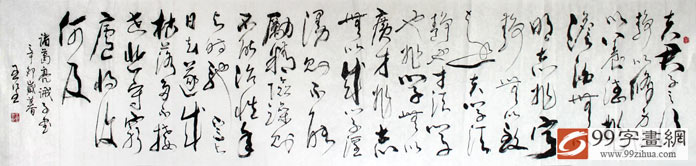 夫君子之行
静以修身俭
以养德非
澹泊无以
明志非宁
静无以致
远夫学须
静也才须学
也非学无以
广才非志
无以成学淫
慢则不能
励精险躁则
不能治性年
与时驰意与
日去遂成
枯落多不接
世悲守穷
庐将复
何及
诸葛亮诫子书
辛卯岁暮
99字畫網
www.99zihua.com